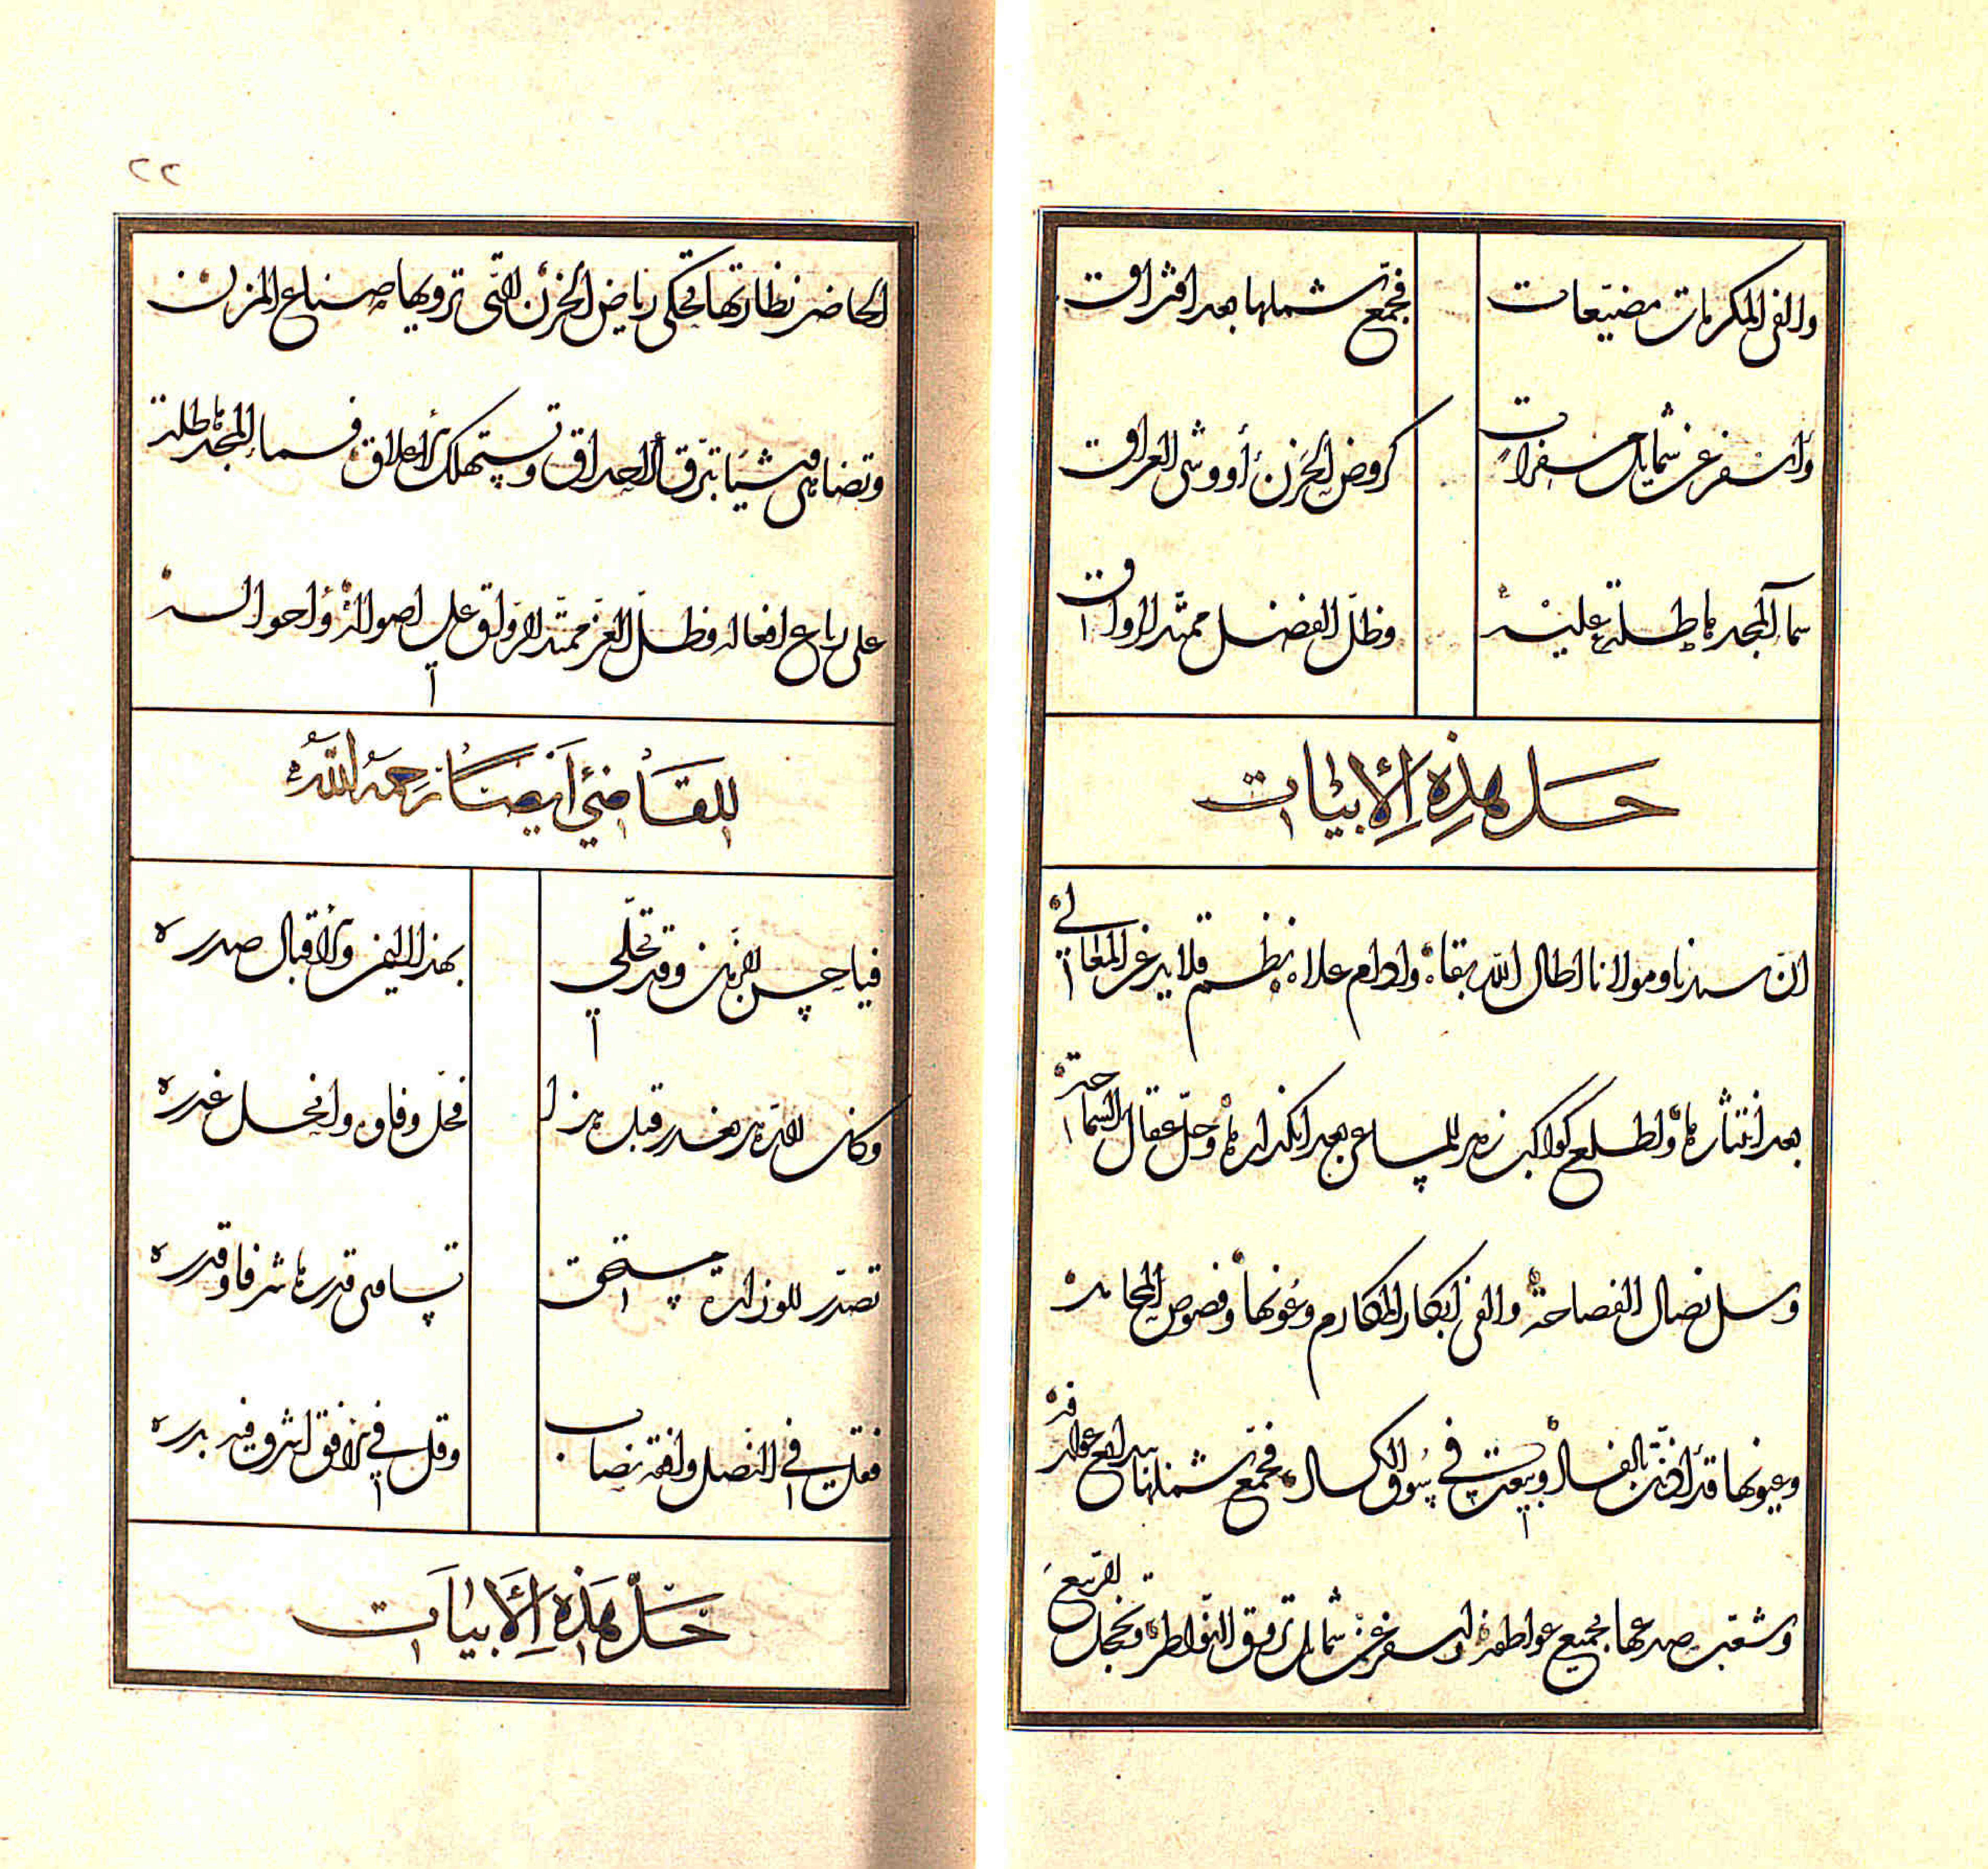 والفى المكرمات مضيّعات فجمّع شملها بعد افتراق
وأسفر عن شمايل مسفرات كروض الحَزن أو وشى العراق
سماء المجد هاطلة عليه وظلّ الفضل ممتد الرواق
حَل هذِهِ الأبيات
انّ سيدنا ومولانا اطال الله بقاءه وادام علاءه نظم قلايد غر المعانى
بعد انتثارها وأطلع كواكب زهر المساعى بعد انكدارها وحلّ عقال السماحة
وسل نصال الفصاحة والفى ابكار المكارم وعُونها وفصوص المحامد
وعيونها قد بالفساد وبيعت في سُوق الكساد فجمّع شملها عوارفه
وشعب صدعها بجميع عواطفه واسفر عن شمايل تروق النواظر وتخجل الربيع
الحاضر نظارتها تحكى رياض الحَزن التى ترويها صناع المزن
وتضاهى وشيا تبرق الأحداق وتستهلك الأعلاق فسماء المجد هاطلة
على رباع افعاله وظلّ العز ممتد الرواق على اصوله وأحواله
للقاضي أيضًا رحمه الله
فيا حسن الزمان وقد تحلّى بهذا اليمن والاقبال صدره
وكان الدهر يغدر قبل هذا فحَلّ وفاؤه وانحل غدره
تصدّر للوزارة مستحق تسامى قدرها شرفا وقدره
فقل في النصل وافقه نصاب وقل في الافق اشرق فيه بدره
حَلّ هَذِهِ الأَبيَات
٢٢